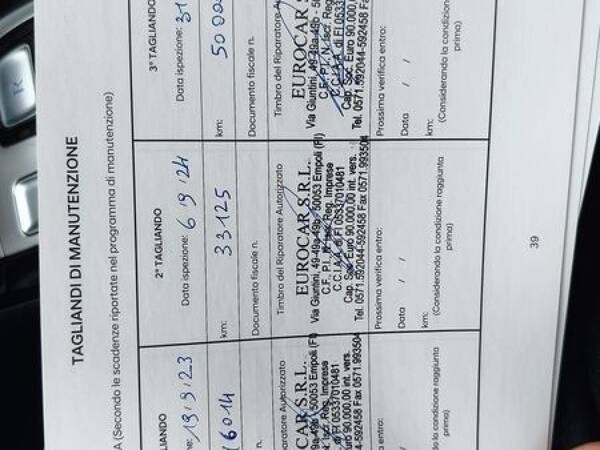 TAGLIANDI DI MANUTENZIONE
A (Secondo le scadenze riportate nel programma di manutenzione)
TAGLIANDO
ne: 19/9/23
16014
n.
paratore Autorizzato
CAR S.R.L.
entro:
do la condizione raggiunta
prima)
2° TAGLIANDO
Data ispezione: 6/9/24
km: 33125
Documento fiscale n.
Timbro del Riparatore Autorizzato
EUROCAR S.R.L.
Via Giuntini, 49-49a-49b - 50053 Empoli (FI)
C.F., P.I., N. Iscr. Reg. Imprese
C.C.I.A.A. di FI 05337010481
Cap. Soc. Euro 90.000,00 int. vers.
Tel. 0571.592044-592458 Fax 0571.993504
Prossima verifica entro:
Data / /
km:
(Considerando la condizione raggiunta
prima)
3° TAGLIANDO
Data ispezione: 31
km: 5000
Documento fiscale n.
Timbro del Riparatore
EUROCAR S.
Via Giuntini, 49-49a-49b - 50
C.F., P.I., N. Iscr. Reg.
C.C.I.A.A. di FI 05337
Cap. Soc. Euro 90.000,
Tel. 0571.592044-592458
Prossima verifica entro:
Data / /
km:
(Considerando la condizione
prima)
39